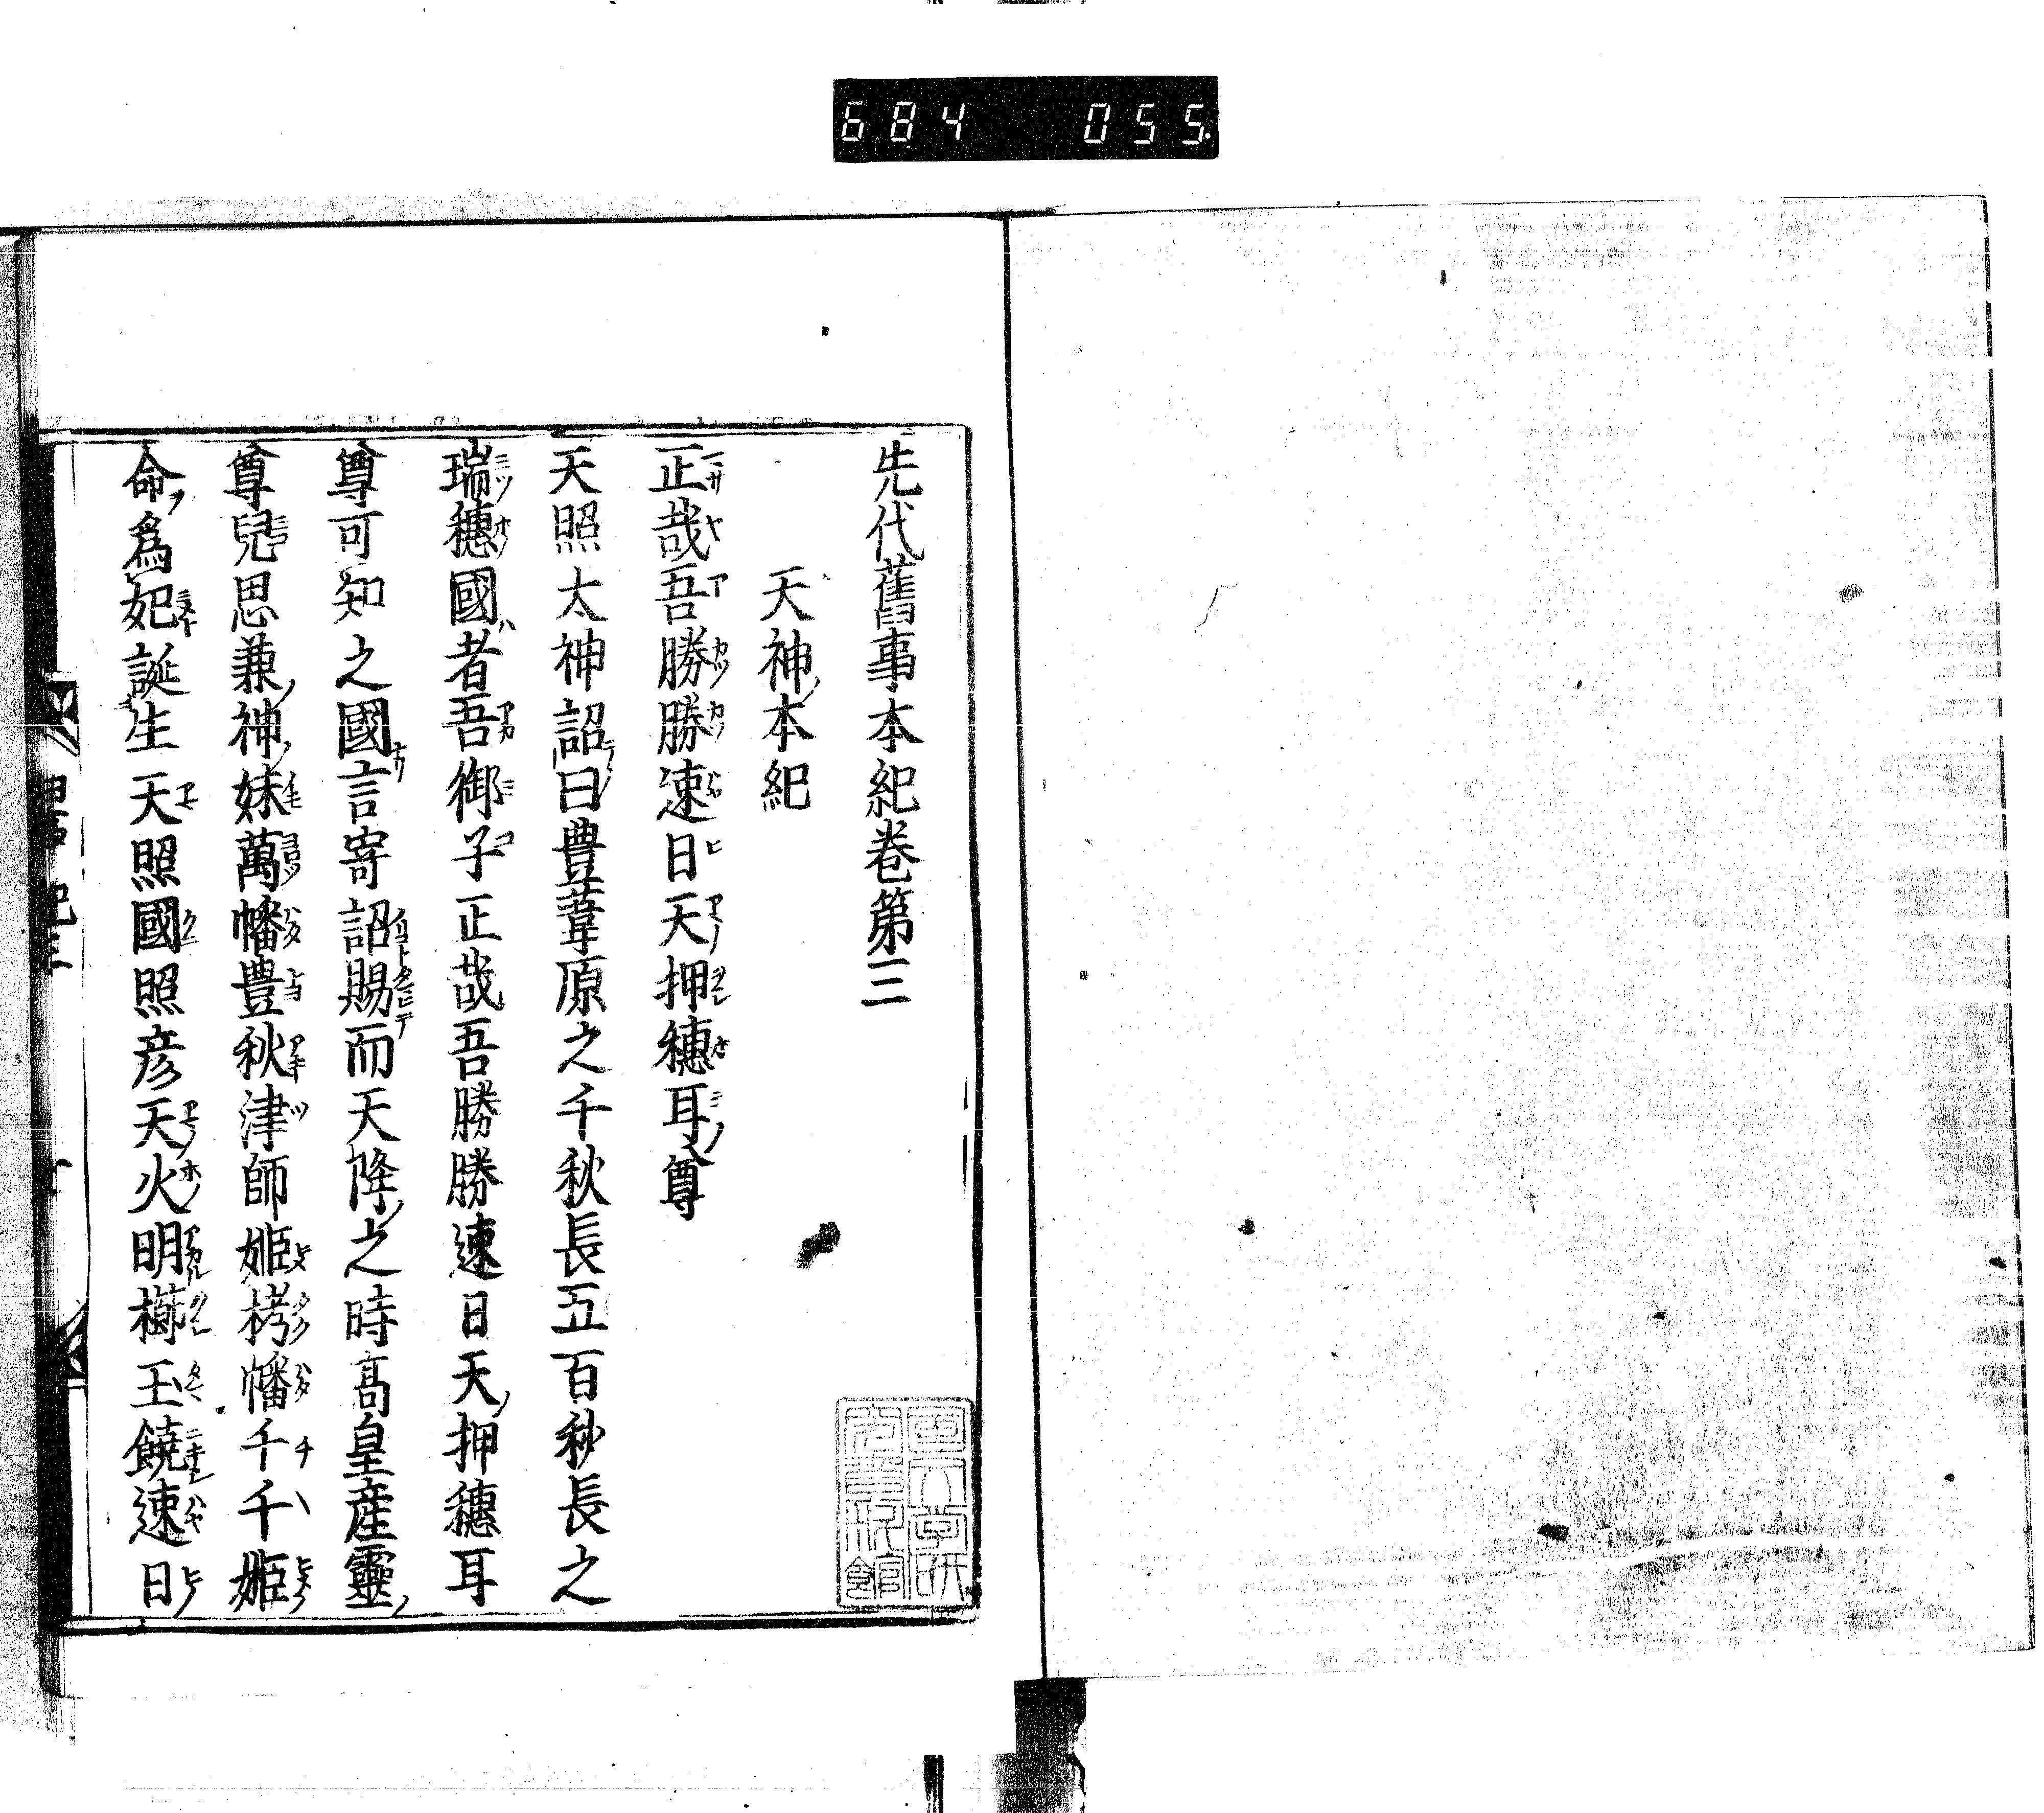 684 055.
先代舊事本紀卷第三
天神本紀
正哉吾勝勝速日天押穗耳尊
天照太神詔曰豊葦原之千秋長五百秋長之
瑞穗國者吾御子正哉吾勝勝速日天押穗耳
尊可知之國言寄詔賜而天降之時高皇産靈
尊兒思兼神妹萬幡豊秋津師姬栲幡千千姬
命爲妃誕生天照國照彦天火明櫛玉饒速日